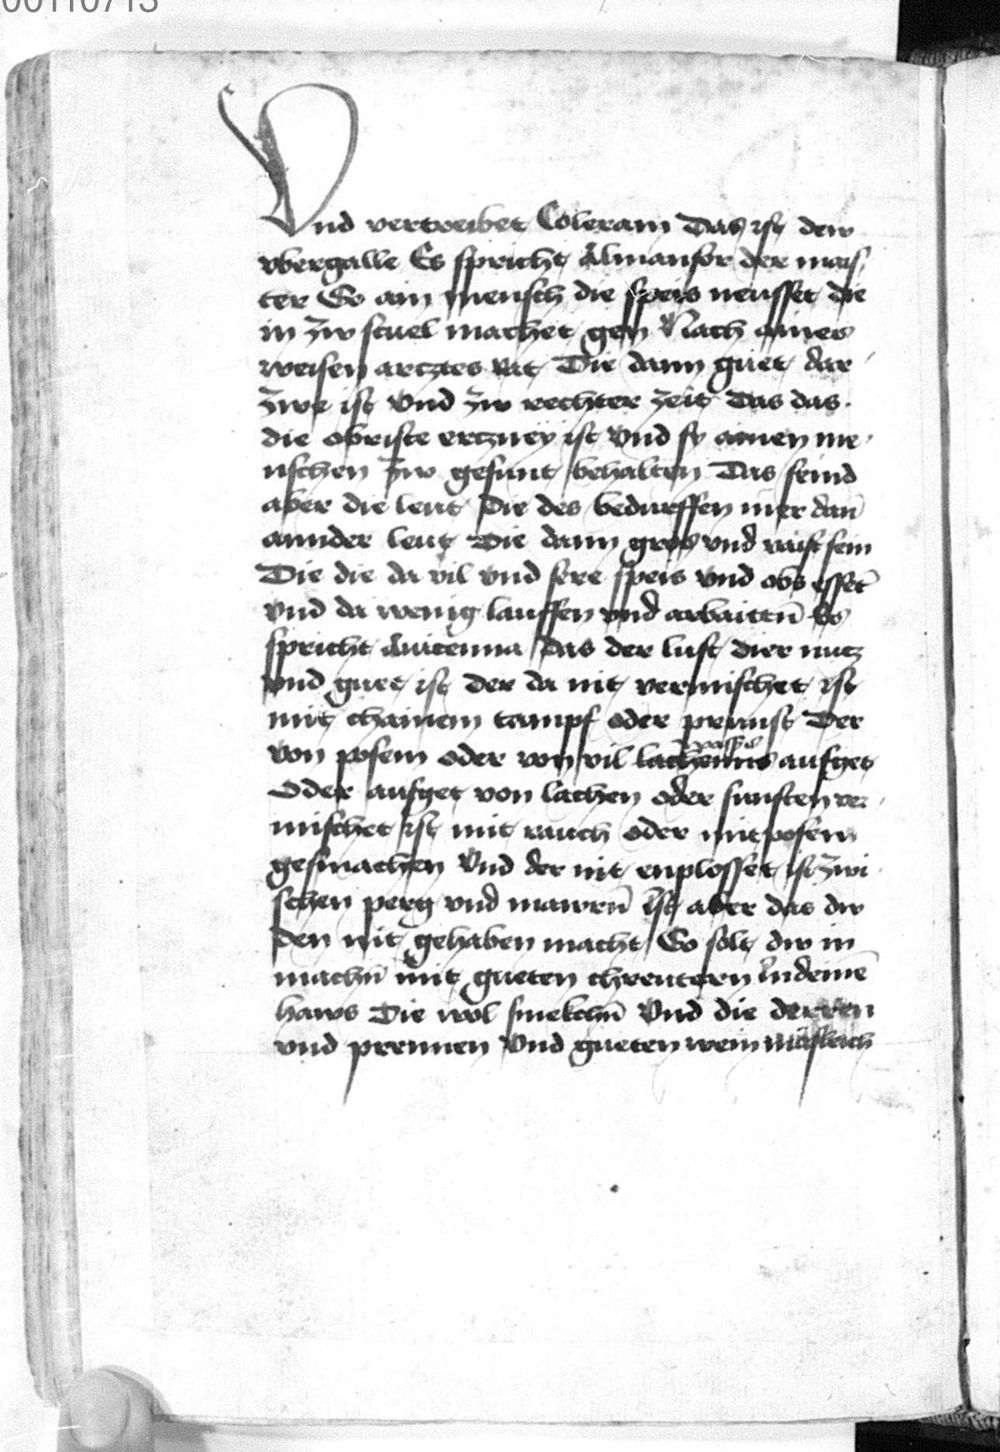 00110713
Vnd vertreibet Coleram Das ist dew
vbergalle Es spricht Almansor der mais
ter So ain mensch die speis neusset die
in zw stuel machet gen Nach aines
weisen arcztes rat Die dann guet dar
zwe ist Vnd zw rechter zeit Das das
die obriste erczney ist Vnd sy ainen me
nschen zw gesunt behalten Das seind
aber die leut Die des bedurffen mer dan̄
annder leut Die dann gros vnd raist sein
Die die da vil vnd sere speis vnd obs essen̄
vnd da wenig lauffen vnd arbaittn̄ Es
spricht Auicenna Das der luft dier nutz
vnd guet ist Der da nit vermischet ist
mit chainem tampf oder prunst Der
von posem oder von vil lachenns aufget
Oder aufget von lachen oder sunsten ver
mischet ist mit rauch oder mit posem
gesmachen Vnd der nit enplosset ist zwi
schen perg vnd mawrn̄ Ist aber das dw
den nit gehaben macht So solt dw in
machn̄ mit gueten chreutern In deinē
haws Die wol smekchn̄ Vnd die derren
vnd prennen Vnd gueten wein